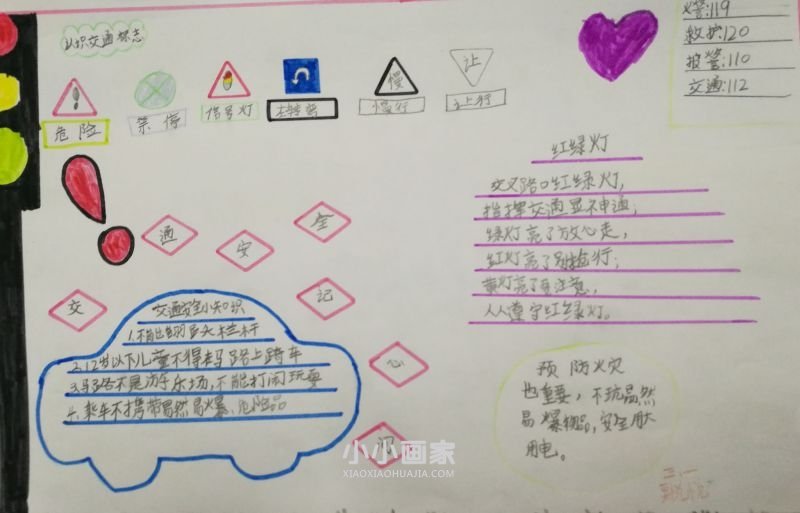 认识交通标志
危险
禁停
信号灯
左转弯
慢
慢行
让
让行
火警:119
救护:120
报警:110
交通:112
交通安全记心间
红绿灯
交叉路口红绿灯,
指挥交通显神通;
绿灯亮了放心走,
红灯亮了别抢行;
黄灯亮了要注意,
人人遵守红绿灯。
交通安全小知识
1.不能翻越栏杆
2.12岁以下儿童不得马路上骑车
3.马路不是游乐场,不能打闹玩耍
4.乘车不携带易燃易爆、危险品
预防火灾
也重要,不玩易燃
易爆物品,安全用火
用电。
三.一
小小画家
XIAOXIAOHUAJIA.COM